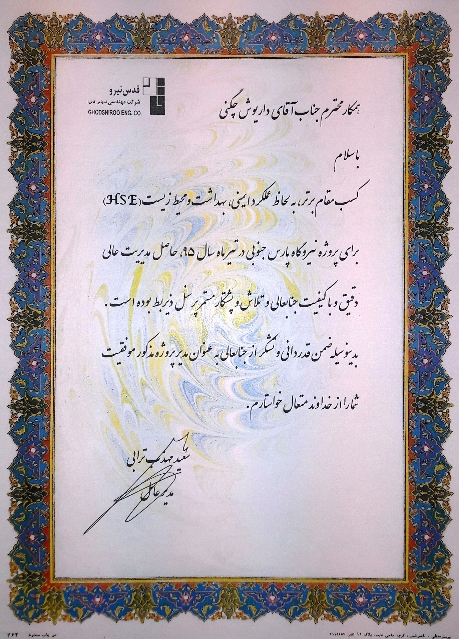 قدس نیرو
شرکت مهندسی قدس نیرو
GHODSNIROO ENG. CO
همکار محترم جناب آقای داریوش چگنی
با سلام
کسب مقام برتر، به لحاظ عملکرد ایمنی، بهداشت و محیط زیست (HSE)
برای پروژه نیروگاه پارس جنوبی در تیر ماه سال ۹۵، حاصل مدیریت عالی
دقیق و با کیفیت جنابعالی و تلاش و پشتکار مستمر پرسنل ذیربط بوده است.
بدینوسیله ضمن قدردانی و تشکر از جنابعالی به عنوان مدیر پروژه مذکور موفقیت
شما را از خداوند متعال خواستارم.
سعید مهذب ترابی
مدیر عامل